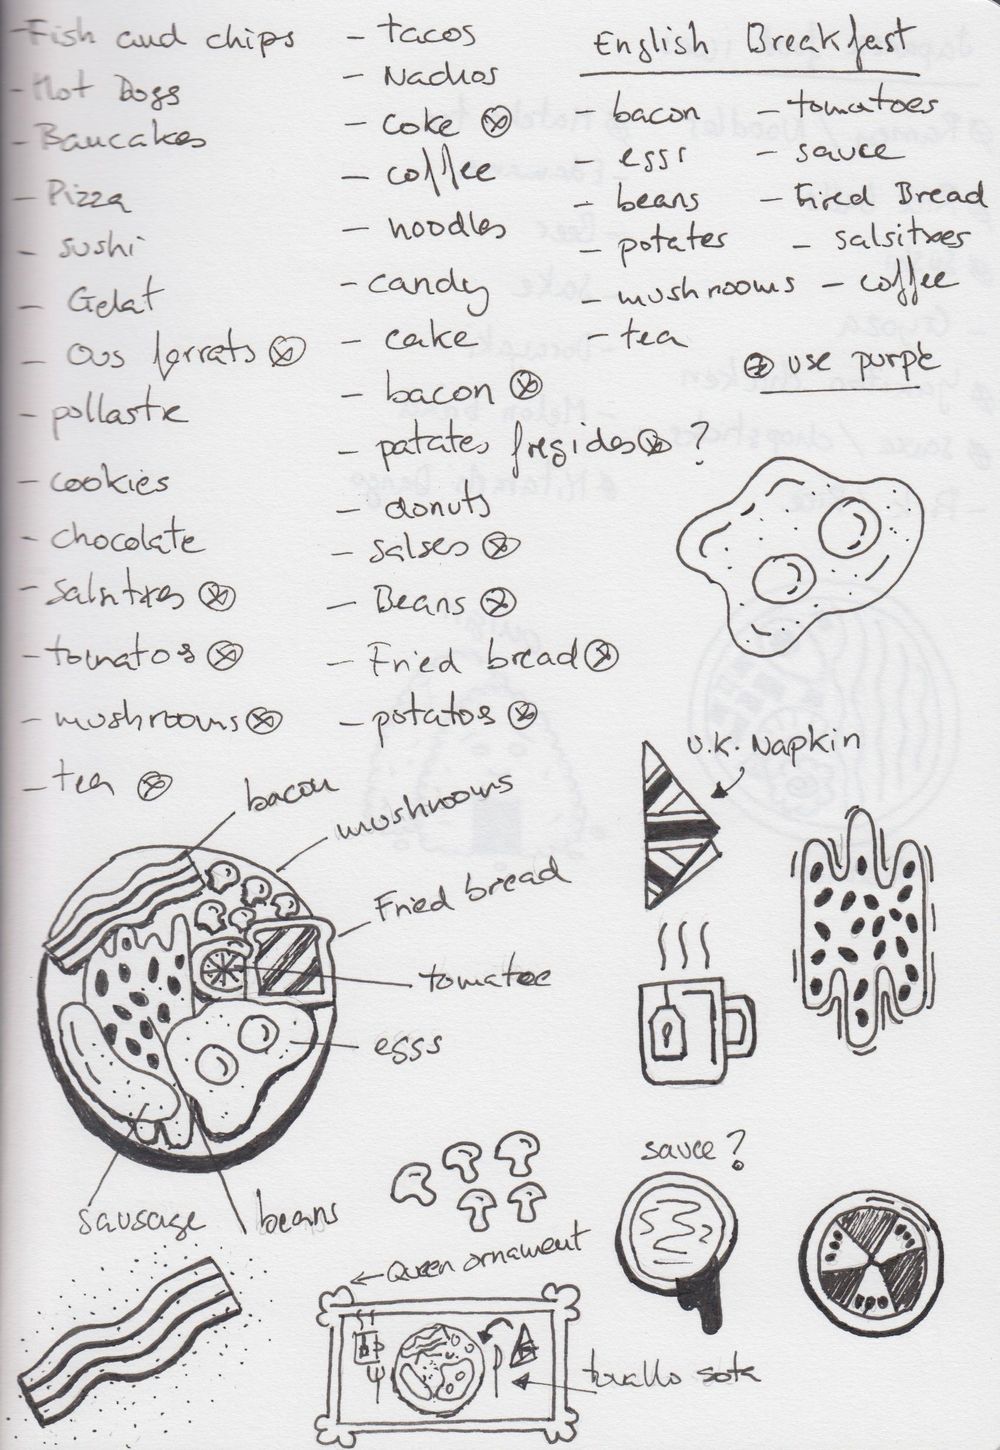 - Fish and chips
- Hot Dogs
- Bancakes
- Pizza
- sushi
- Gelat
- Ous ferrats
- pollastre
- cookies
- chocolate
- salsitxes
- tomatos
- mushrooms
- tea
- tacos
- Nachos
- coke
- coffee
- noodles
- candy
- cake
- bacon
- patates fregides ?
- donuts
- salses
- Beans
- Fried bread
- potatos
English Breakfast
- bacon
- eggs
- beans
- potates
- mushrooms
- tea
- tomatoes
- sauce
- Fired Bread
- salsitxes
- coffee
use purple
U.K. Napkin
bacon
mushrooms
Fried bread
tomatoe
eggs
sausage
beans
sauce?
Queen ornament
tovallo sota